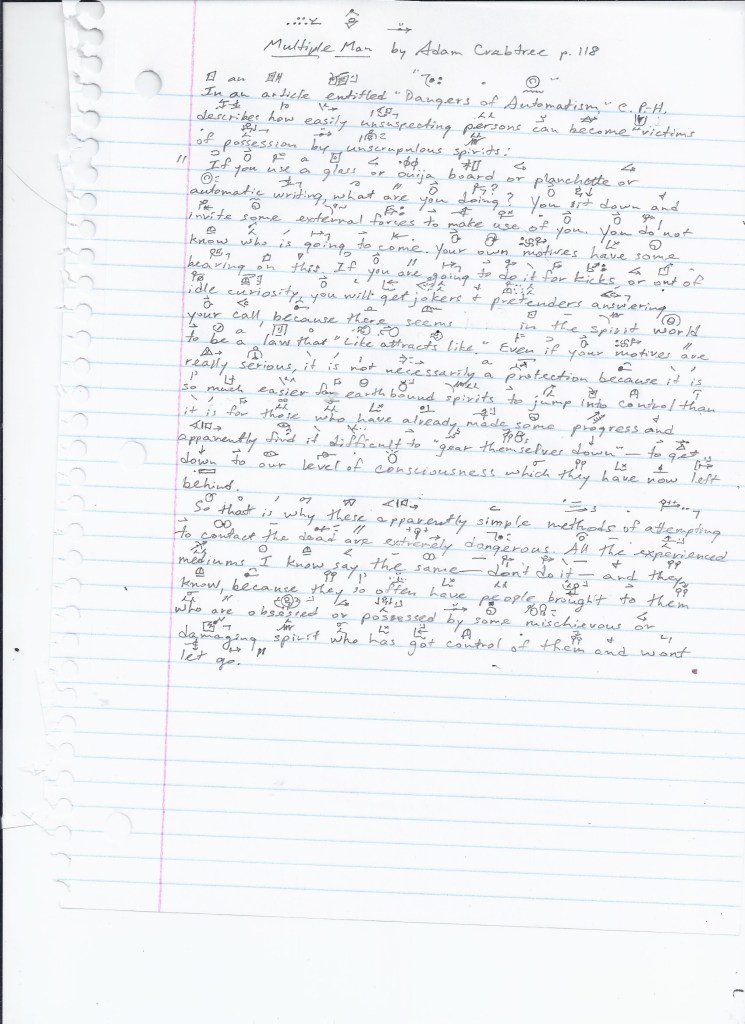 Multiple Man by Adam Crabtree p. 118
In an article entitled "Dangers of Automatism," C. P-H.
describes how easily unsuspecting persons can become "victims
of possession by unscrupulous spirits:
" If you use a glass or ouija board or planchette or
automatic writing, what are you doing? You sit down and
invite some external forces to make use of you. You do not
know who is going to come. Your own motives have some
bearing on this. If you are going to do it for kicks, or out of
idle curiosity, you will get jokers & pretenders answering
your call, because there seems in the spirit world
to be a law that "like attracts like." Even if your motives are
really serious, it is not necessarily a protection because it is
so much easier for earthbound spirits to jump into control than
it is for those who have already made some progress and
apparently find it difficult to "gear themselves down" – to get
down to our level of consciousness which they have now left
behind.
So that is why these apparently simple methods of attempting
to contact the dead are extremely dangerous. All the experienced
mediums I know say the same – don't do it – and they
know, because they so often have people brought to them
who are obsessed or possessed by some mischievous or
damaging spirit who has got control of them and wont
let go.